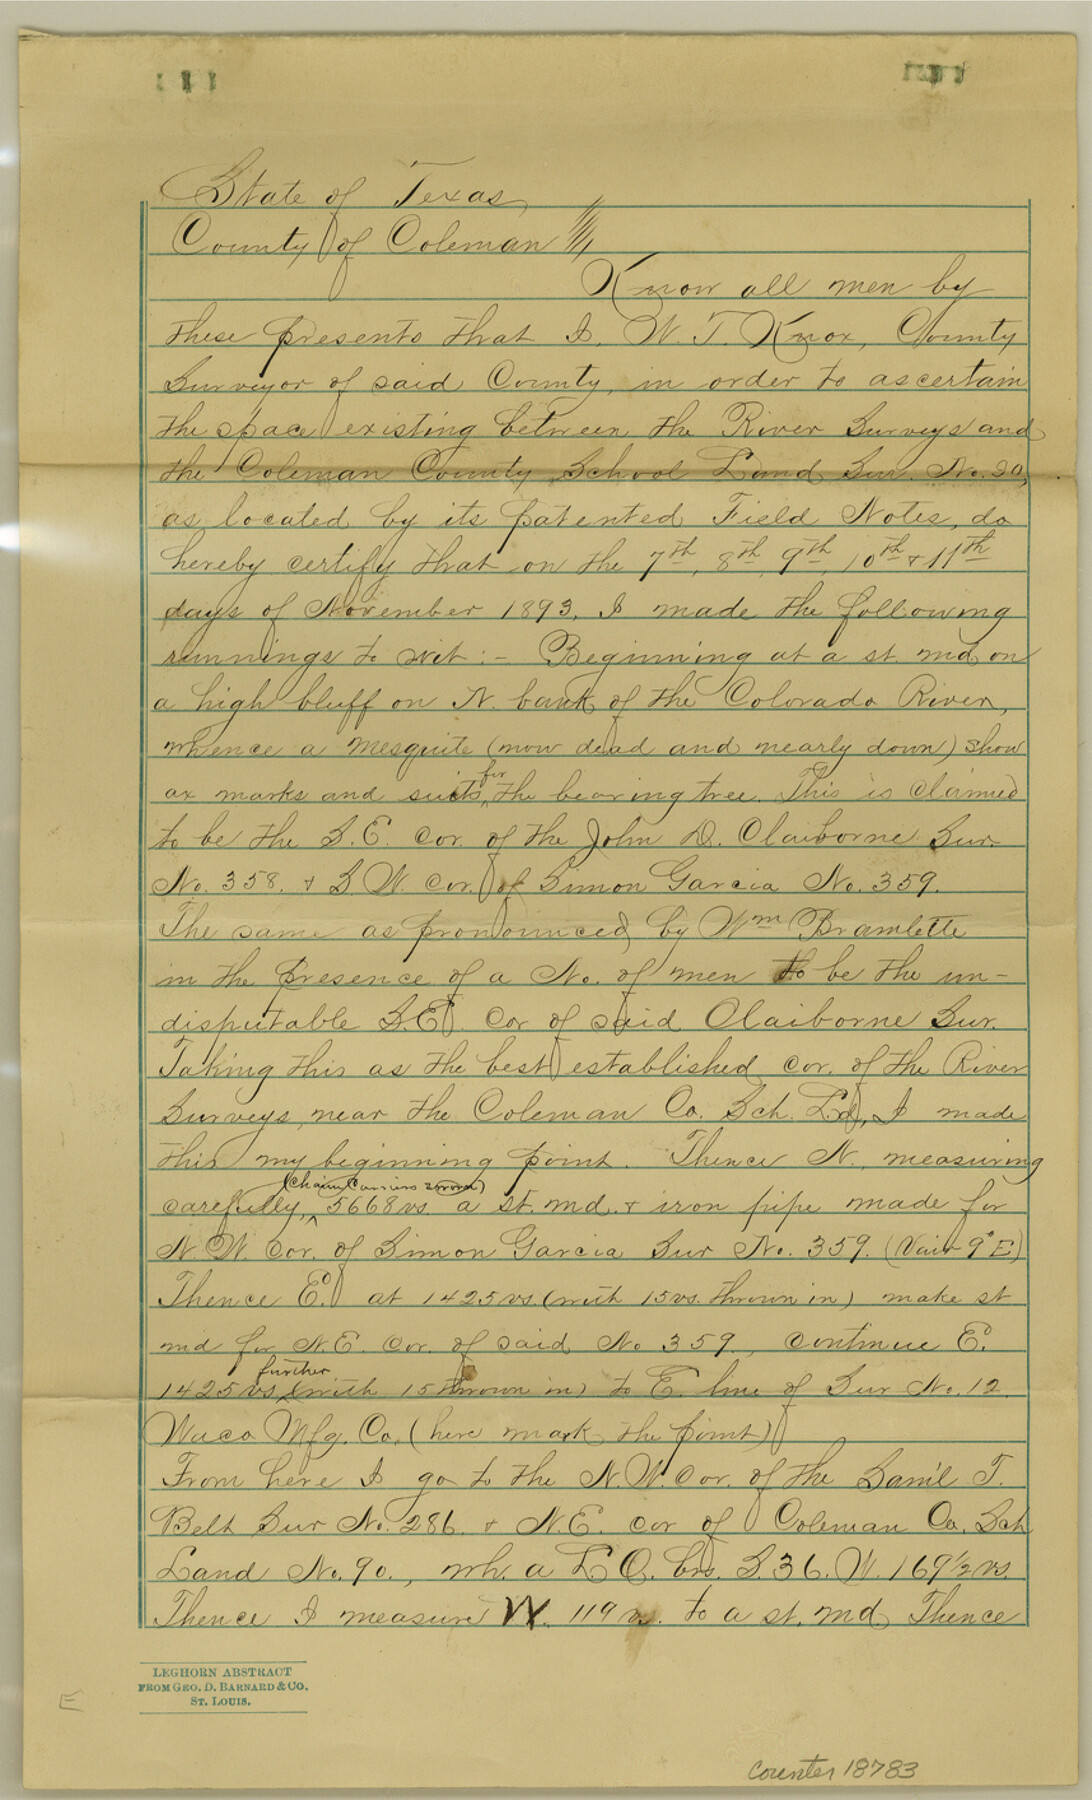 State of Texas,
County of Coleman
Know all men by
these presents that I, W. T. Knox, County
Surveyor of said County, in order to ascertain
the space existing between the River Surveys and
the Coleman County School Land Sur. No. 90,
as located by its patented Field Notes, do
hereby certify that on the 7th, 8th, 9th, 10th & 11th
days of November 1893, I made the following
runnings to wit:- Beginning at a st. md on
a high bluff on N. bank of the Colorado River,
whence a Mesquite (now dead and nearly down) show
for
ax marks and suits, the bearing tree. This is claimed
to be the S.E. cor. of the John D. Claiborne Sur.
No. 358. & S W. cor. of Simon Garcia No. 359.
The same as pronounced by Wm Bramlette
in the presence of a No. of men to be the un-
disputable S.E. cor of said Claiborne Sur.
Taking this as the best established cor. of the River
Surveys, near the Coleman Co. Sch. Ld, I made
this my beginning point. Thence N. measuring
(Chain Carriers sworn)
carefully, 5668 vs. a st. md. & iron pipe made for
N. W. Cor. of Simon Garcia Sur No. 359. (Vair 9° E)
Thence E. at 1425 vs. (with 15 vs. thrown in) make st
md for N.E. cor. of said No 359, continue E.
further
1425 vs. (with 15 thrown in) to E. line of Sur No. 12
Waco Mfg. Co, (here mark the point)
From here I go to the N.W. cor. of the Sam'l T.
Belt Sur No. 286. & N.E. cor of Coleman Co. Sch
Land No. 90., wh. a L O. brs. S. 36. W. 169 1/2 vs.
Thence I measure W. 119 vs. to a st. md Thence
LEGHORN ABSTRACT
FROM GEO. D. BARNARD & CO.
ST. LOUIS.
E
counter 18783